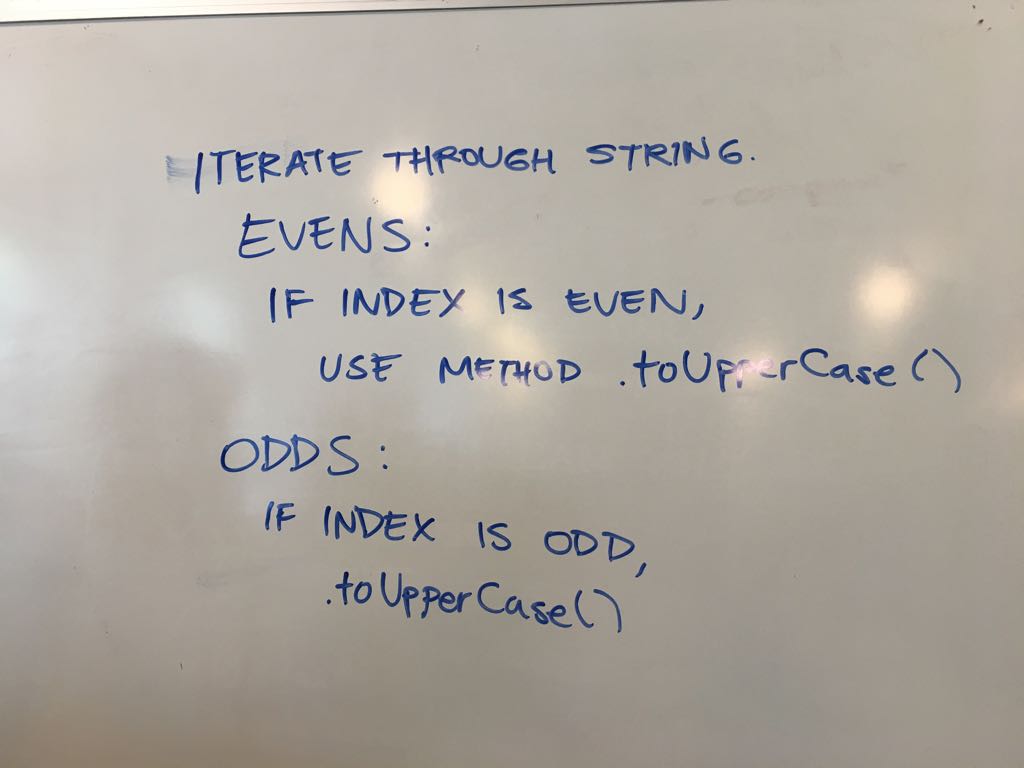 ITERATE THROUGH STRING.
EVENS:
IF INDEX IS EVEN,
USE METHOD .toUpperCase()
ODDS:
IF INDEX IS ODD,
.toUpperCase()